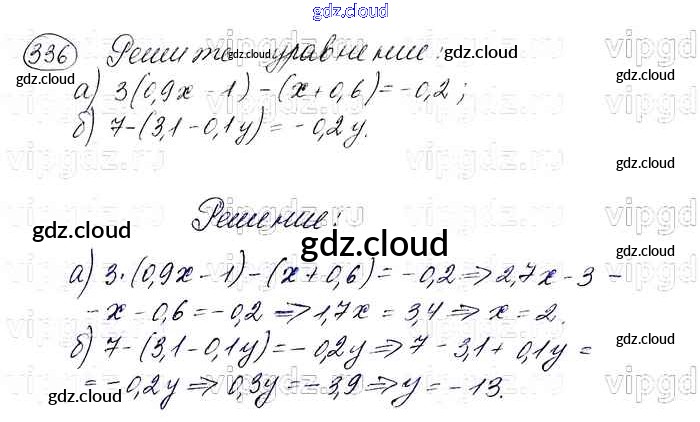 gdz.cloud
336 Решите уравнение:
а) 3(0,9x - 1) - (x + 0,6) = -0,2;
б) 7 - (3,1 - 0,1y) = -0,2y.
Решение:
а) 3·(0,9x - 1) - (x + 0,6) = -0,2 ⇒ 2,7x - 3 -
- x - 0,6 = -0,2 ⇒ 1,7x = 3,4 ⇒ x = 2.
б) 7 - (3,1 - 0,1y) = -0,2y ⇒ 7 - 3,1 + 0,1y =
= -0,2y ⇒ 0,3y = -3,9 ⇒ y = -13.
gdz.cloud
gdz.cloud
gdz.cloud
gdz.cloud
gdz.cloud
gdz.cloud
gdz.cloud
gdz.cloud
gdz.cloud
gdz.cloud
gdz.cloud